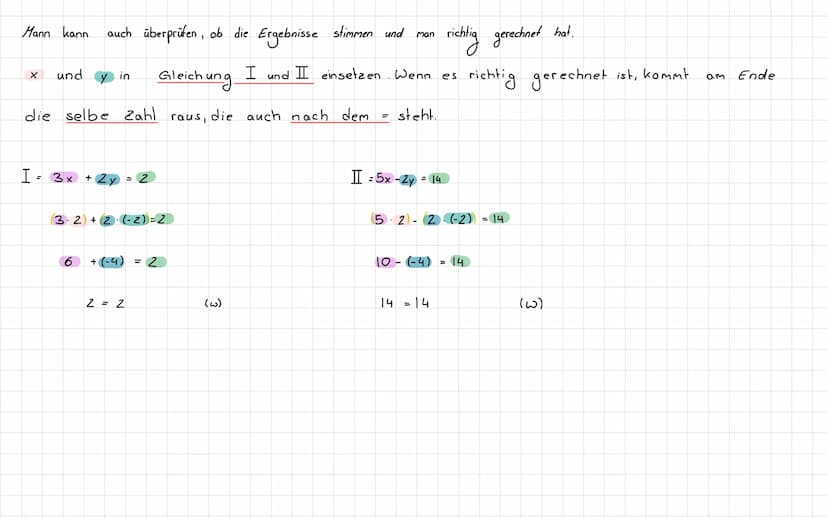 Mann kann auch überprüfen, ob die Ergebnisse stimmen und man richtig gerechnet hat.
x und y in Gleichung I und II einsetzen. Wenn es richtig gerechnet ist, kommt am Ende
die selbe Zahl raus, die auch nach dem = steht.
I = 3x + 2y = 2
(3 · 2) + (2 · (-2)) = 2
6 + (-4) = 2
2 = 2 (w)
II = 5x - 2y = 14
(5 · 2) - (2 · (-2)) = 14
10 - (-4) = 14
14 = 14 (w)